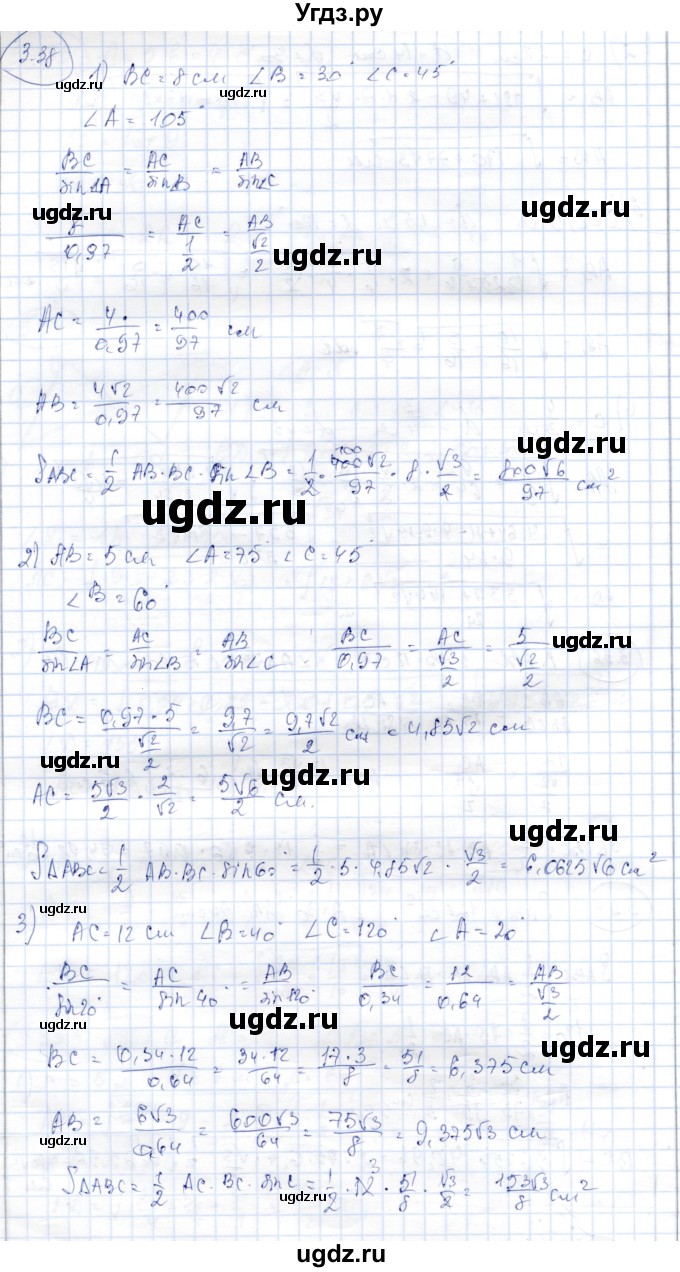 Угдз.ру
3.38
1) BC = 8 см ∠B = 30° ∠C = 45°
ugdz.ru ugdz.ru
∠A = 105°
BC/sin∠A = AC/sin∠B = AB/sin∠C
ugdz.ru ugdz.ru
8/0,97 = AC/(1/2) = AB/(√2/2)
ugdz.ru
AC = 4·/0,97 = 400/97 см
ugdz.ru
AB = 4√2/0,97 = 400√2/97 см
ugdz.ru
SABC = 1/2 AB·BC·sin∠B = 1/2 · 400√2/97 · 8 · √3/2 = 800√6/97 см²
ugdz.ru ugdz.ru
2) AB = 5 см ∠A = 75° ∠C = 45°
∠B = 60°
ugdz.ru
BC/sin∠A = AC/sin∠B = AB/sin∠C BC/0,97 = AC/(√3/2) = 5/(√2/2)
ugdz.ru
BC = 0,97·5/(√2/2) = 9,7/√2 = 9,7√2/2 см = 4,85√2 см
ugdz.ru
AC = 5√3/2 · 2/√2 = 5√6/2 см.
ugdz.ru
ugdz.ru
S∆ABC = 1/2 AB·BC·sin60° = 1/2 · 5 · 4,85√2 · √3/2 = 6,0625√6 см²
ugdz.ru
3) AC = 12 см ∠B = 40° ∠C = 120° ∠A = 20°
BC/sin20° = AC/sin40° = AB/sin120° BC/0,34 = 12/0,64 = AB/(√3/2)
ugdz.ru ugdz.ru
BC = 0,34·12/0,64 = 34·12/64 = 17·3/8 = 51/8 = 6,375 см
ugdz.ru
AB = 6√3/0,64 = 600√3/64 = 75√3/8 = 9,375√3 см
ugdz.ru
S∆ABC = 1/2 AC·BC·sinC = 1/2 · 12 3 · 51/8 · √3/2 = 153√3/8 см²
ugdz.ru ugdz.ru
ugdz.ru